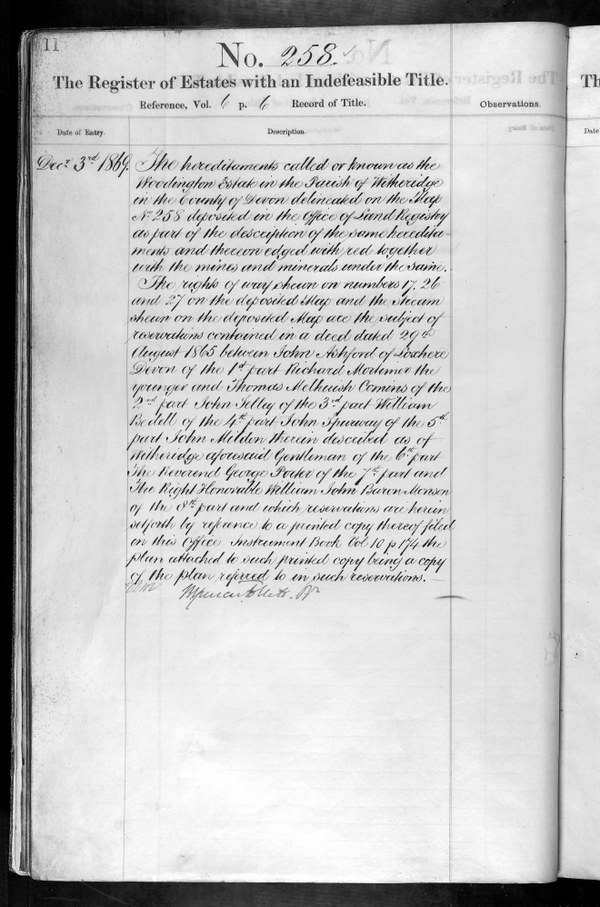 11
No. 258.
The Register of Estates with an Indefeasible Title.
Reference, Vol. 6 p. 6 Record of Title.
Observations.
Date of Entry.
Description.
Decr 3rd 1869.
The hereditaments called or known as the
Woodington Estate in the Parish of Witheridge
in the County of Devon delineated on the Map
No 258 deposited in the Office of Land Registry
as part of the description of the same heredita-
ments and thereon edged with red together
with the mines and minerals under the same.
The rights of way shewn on numbers 17. 26
and 27 on the deposited Map and the Stream
shewn on the deposited Map are the subject of
reservations contained in a deed dated 29th
August 1865 between John Ashford of Loxhere
Devon of the 1st part Richard Mortimer the
younger and Thomas Melhuish Comins of the
2nd part John Selley of the 3rd part William
Bedell of the 4th part John Spurway of the 5th
part John Mildon therein described as of
Witheridge aforesaid Gentleman of the 6th part
The Reverend George Porter of the 7th part and
The Right Honorable William John Baron Monson
of the 8th part and which reservations are herein
setforth by reference to a printed copy thereof filed
in this Office Instrument Book Vol 10 p 174 the
plan attached to such printed copy being a copy
of the plan refered to in such reservations.
Th
Date